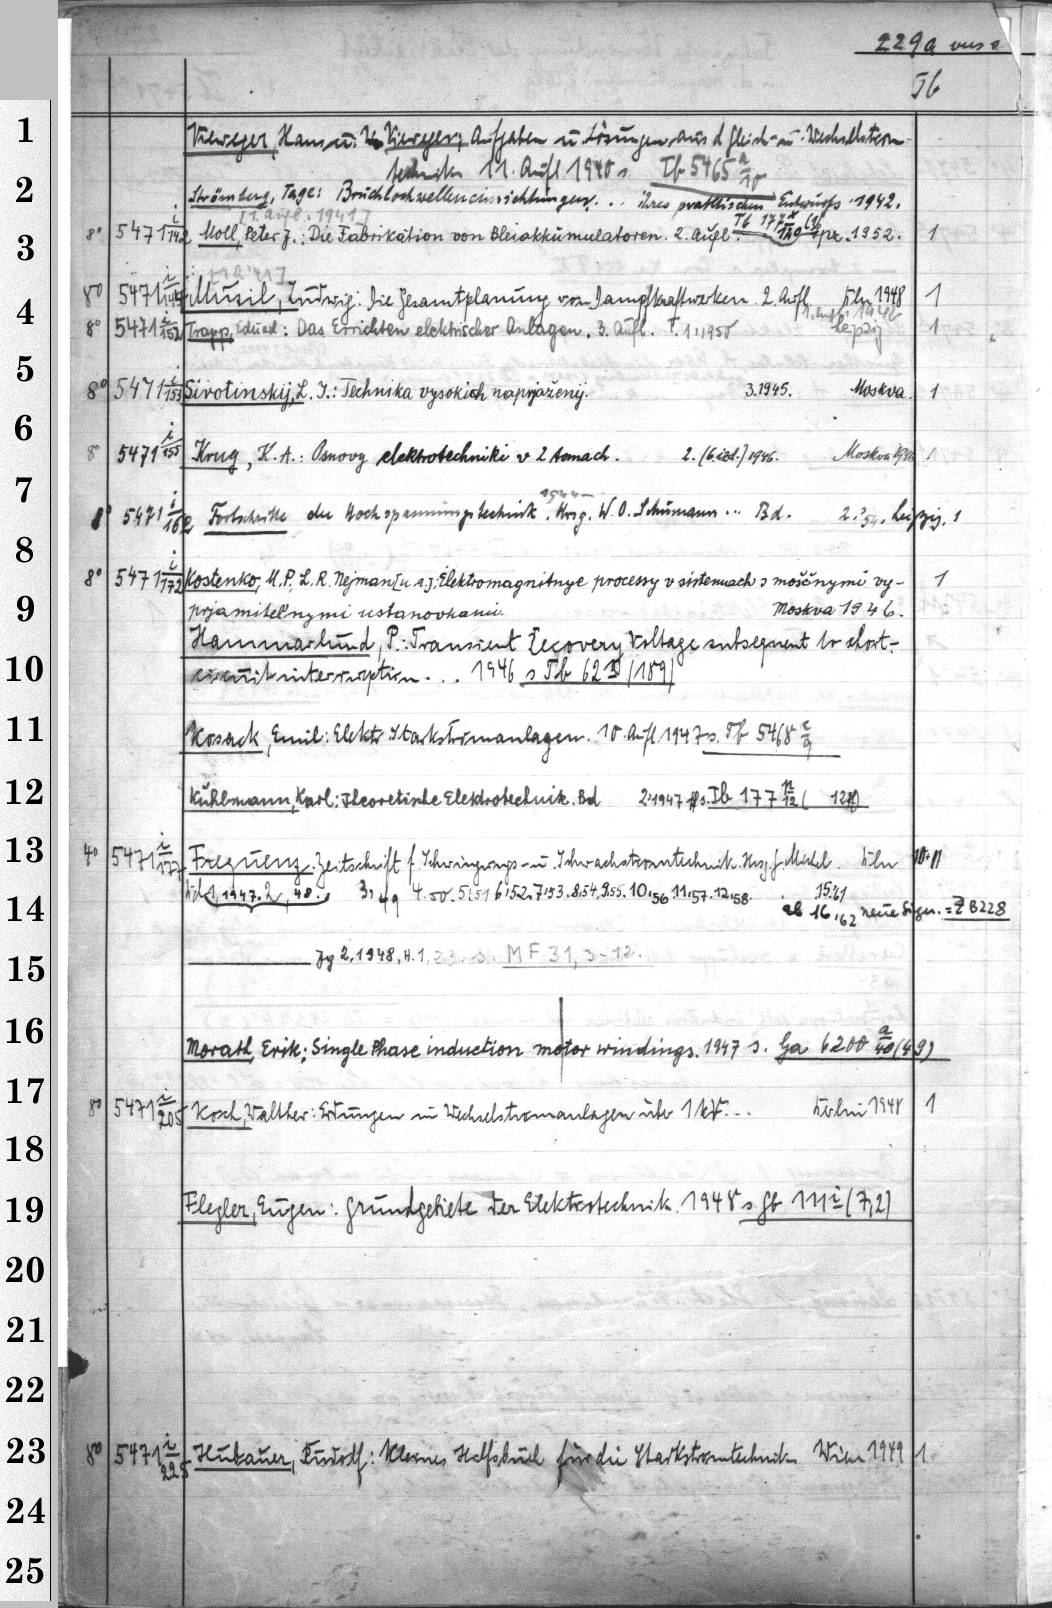 229a
Tb
1
Vieweger, Hans u. W. Vieweger: Aufgaben u. Lösungen aus d. Gleich- u. Wechselstrom-
technik 11. Aufl 1940 s. Tb 5465 a/10
2
Strömberg, Tage: Bruchlochwellen... ihres praktischen Entwurfs 1942.
[1. Aufl. 1941] Tb 177
3
8° 5471 i/142 Moll, Peter J.: Die Fabrikation von Bleiakkumulatoren. 2. Aufl. Lpz. 1952. 1
4
8° 5471 i/144 Musil, Ludwig: Die Gesamtplanung von Dampfkraftwerken. 2. Aufl Bln 1948 1
1. Aufl. 1942
8° 5471 i/152 Trapp, Eduard: Das Errichten elektrischer Anlagen. 3. Aufl. T. 1. 1950 Leipzig 1
5
8° 5471 i/153 Sirotinskij, L. I.: Technika vysokich naprjaženij. 3.1945. Moskva. 1
6
8° 5471 i/155 Krug, K. A.: Osnovy elektrotechniki v 2 tomach. 2. (6 izd.) 1946. Moskva 1946 1
7
1944–
8° 5471 i/162 Fortschritte der Hochspannungstechnik. Hrsg. W. O. Schumann ... Bd. 2. Leipzig. 1
8
8° 5471 i/172 Kostenko, M. P., L. R. Nejman [u. a.]: Elektromagnitnye processy v sistemach s moščnymi vy- 1
9
prjamitel'nymi ustanovkami. Moskva 1946.
Hammarlund, P.: Transient Recovery Voltage subsequent to short-
10
circuit interruption... 1946 s Tb 62 (189)
11
Kosack, Emil: Elektr. Starkstromanlagen. 10. Aufl 1947 s. Tb 5468
12
Kühlmann, Karl: Theoretische Elektrotechnik. Bd 2. 1947 s. Ib 177 n/12 (
13
4° 5471 i/177 Frequenz. Zeitschrift f. Schwingungs- u. Schwachstromtechnik. Hrsg. Bln 10.11
14
Bd 1, 1947. 2, 48. 3, 49 4. 50. 5. 51 6. 52. 7. 53. 8. 54. 9. 55. 10. 56. 11. 57. 12. 58. 15. 61
ab 16, 62 neue Sign. = Z B228
15
Jg 2, 1948, H. 1, 2 3. s. MF 31, 3-12.
16
Morath, Erik: Single Phase induction motor windings. 1947 s. Ga 6200 a/40 (49)
17
8° 5471 i/205 Koch, Walther: Erdungen in Wechselstromanlagen über 1 kV... Berlin 1948 1
18
19
Flegler, Eugen: Grundgebiete der Elektrotechnik. 1948 s Gb 111 i (7,2)
20
21
22
23
8° 5471 i/225 Hubauer, Rudolf: Kleines Hilfsbuch für die Starkstromtechnik Wien 1949 1
24
25